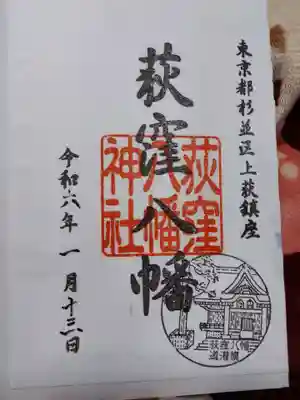 東京都杉並区上荻鎮座
荻窪八幡
荻窪
八幡
神社
令和六年一月十三日
荻窪八幡
道灌槇